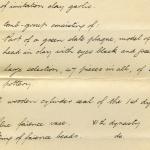 of imitation clay garlic.
tomb-group consisting of:
Part of a green slate plaque, model of
head in clay with eyes black and
large selection, 27 pieces in all, of
pottery.
wooden cylinder seal of the 1st dy
faience vase. XII dynasty
string of faience beads. do.